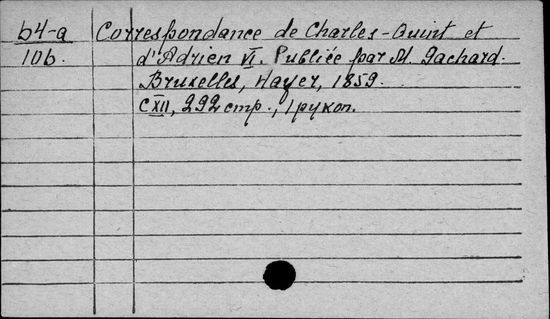 b4-a Correspondance de Charles-Quint et
10b. d'Adrien VI. Publiée par M. Gachard.
Bruxelles, Hayer, 1859.
CXII, 292 стр., 1 рукоп.